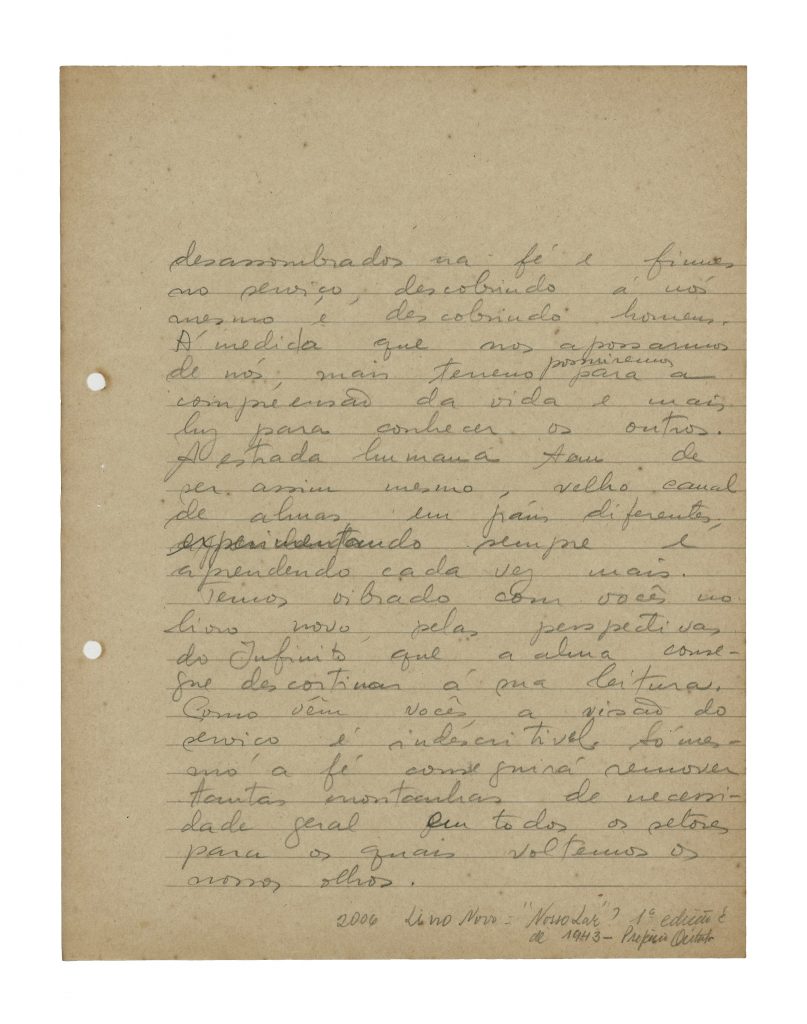 desassombrados na fé e firmes
no serviço, descobrindo á nós
mesmo é descobrindo homens.
Á medida que nos apossarmos
de nós, mais terreno possuiremos para a
compreensão da vida e mais
luz para conhecer os outros.
A estrada humana tem de
ser assim mesmo, velho canal
de almas em gráus diferentes,
experimentando sempre e
aprendendo cada vez mais.
Temos vibrado com vocês no
livro novo, pelas perspectivas
do Infinito que a alma conse-
gue descortinar á sua leitura.
Como vêm vocês a visão do
serviço é indescritivel. Só mes-
mo a fé conseguirá remover
tantas montanhas de necessi-
dade geral em todos os setores
para os quais voltemos os
nossos olhos.
2006 Livro Novo = "Nosso Lar"? 1ª edição é
de 1943 - Prefácio